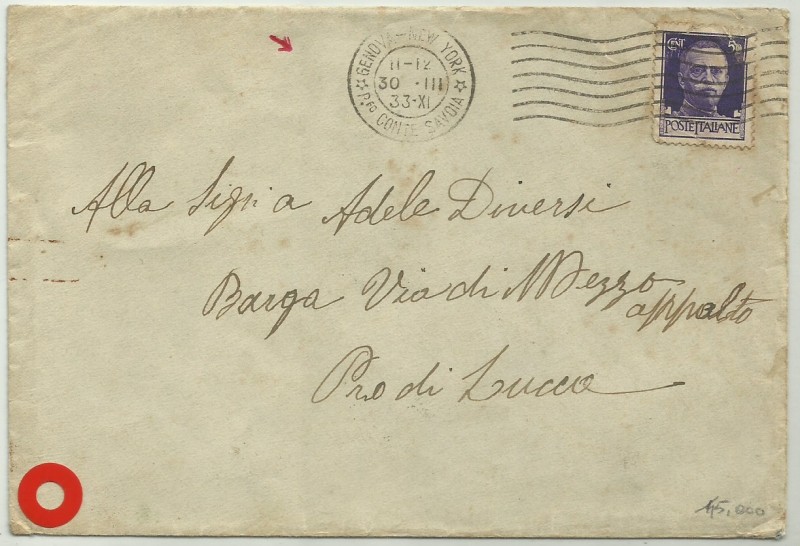 GENOVA-NEW YORK
11-12
30 · III
33·XI
P.fo CONTE SAVOIA
CENT 50
POSTE ITALIANE
Alla Sigra Adele Diversi
Barga Via di Mezzo
appalto
Pro di Lucca
45,000